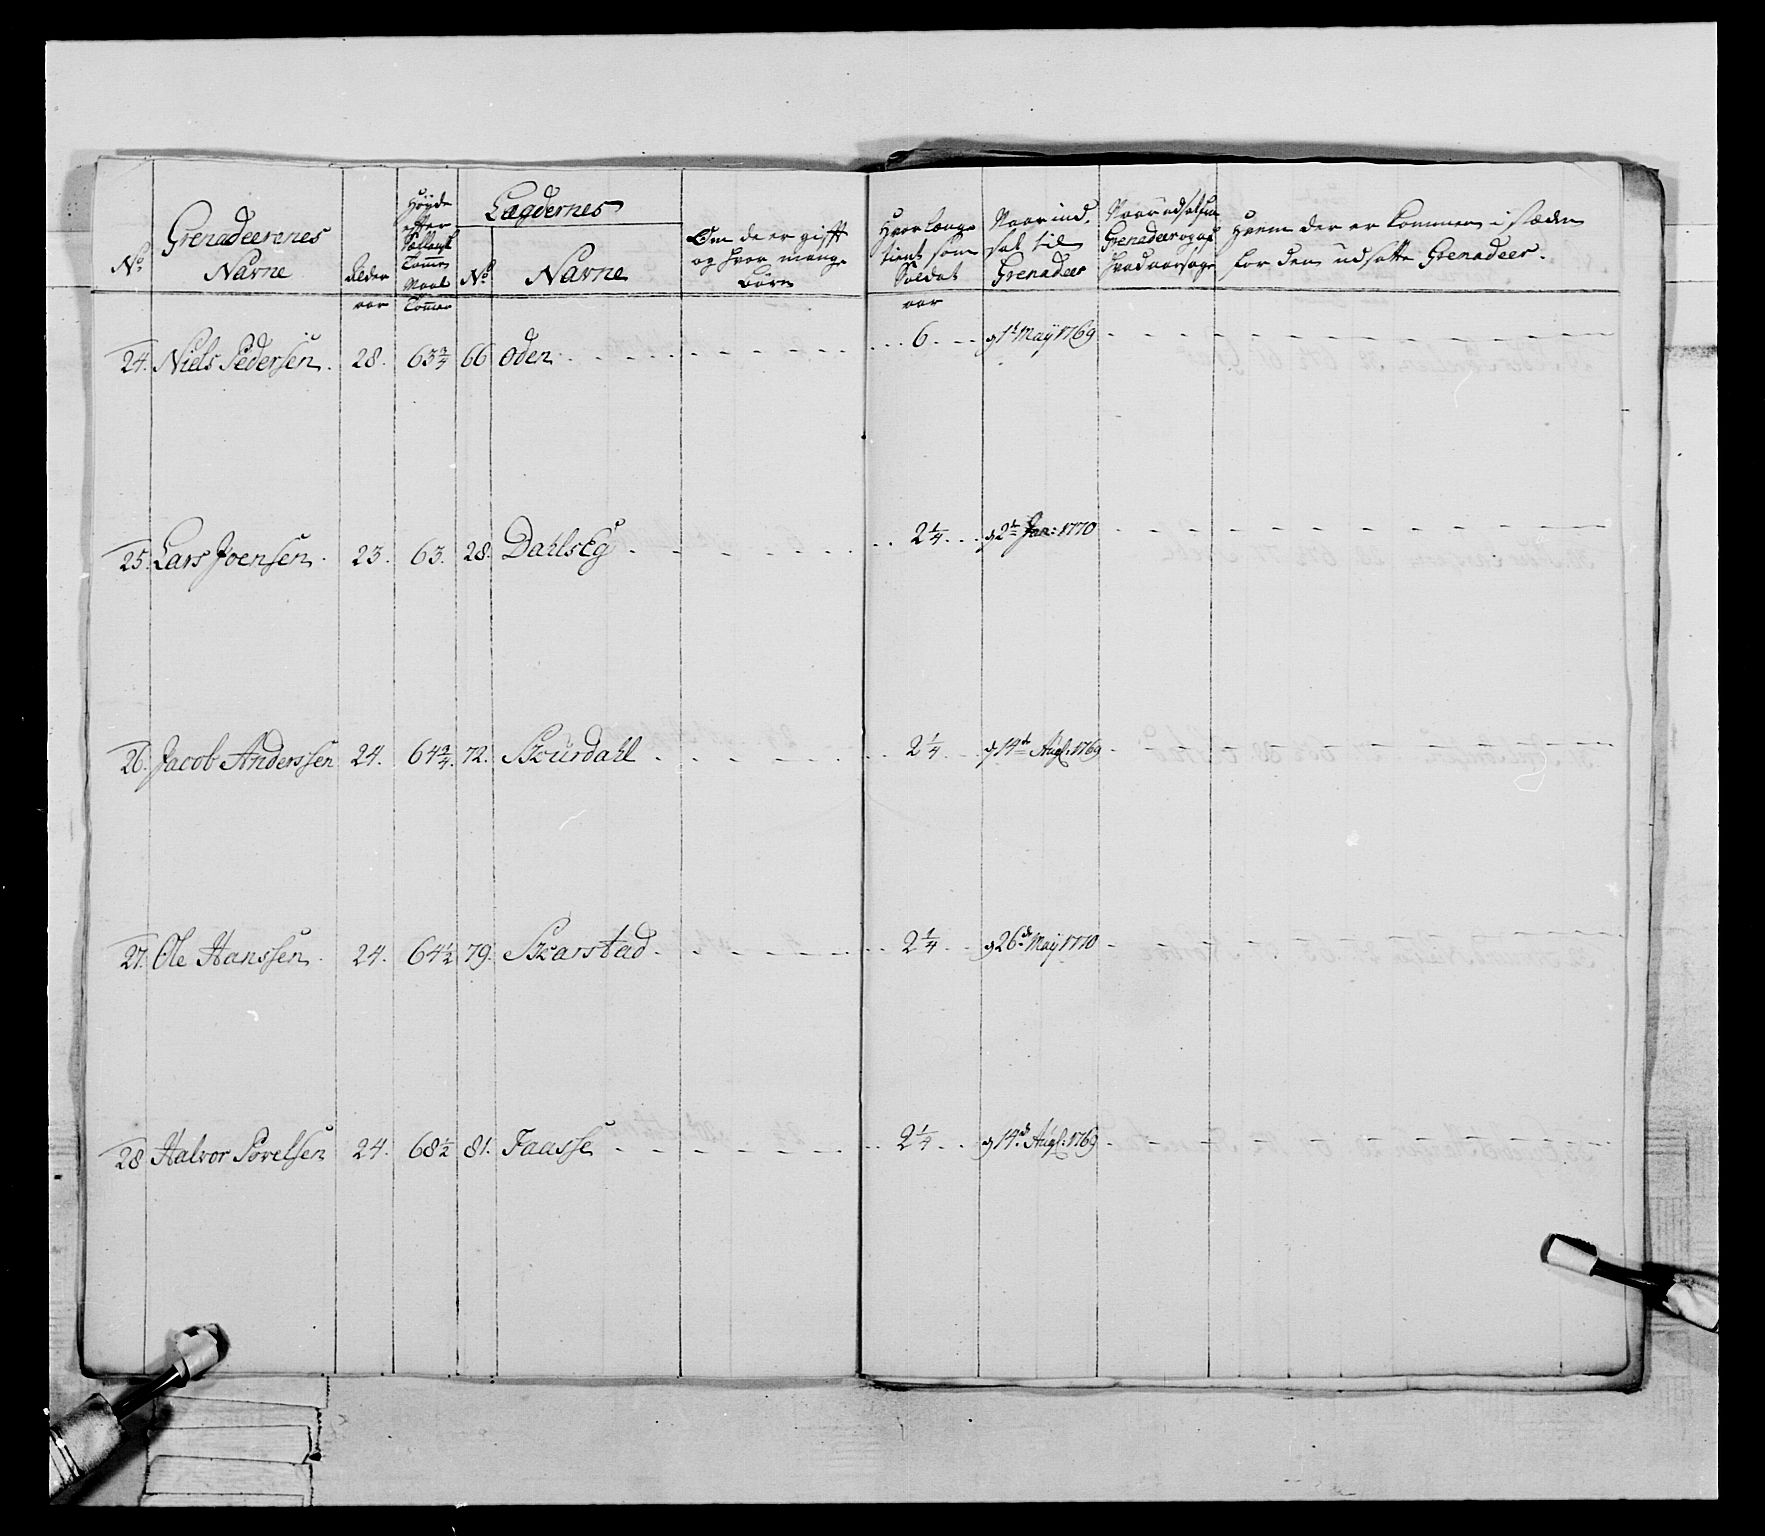 No
Grenadeerenes
Navne
Alder
aar
Høyde
efter
Siellansk
Tomme
Maal
Tommer
Lægdernes
No
Navne
Om de er gifft
og hvor mange
börn
Hvor længe
tient som
Soldat
aar
Naar ind.
sat til
Grenadeer
Naar udsat fra
Grenadeer og af
hvad aarsage
Hvem der er kommen i stæden
for den udsatte Grenadeer.
24. Niels Pedersen. 28. 63 3/4 66 Oden 6. d 1t May 1769
25. Lars Joensen. 23. 63. 28. Dahlseg 2 1/4 d 2t Jan: 1770
26. Jacob Anderssen 24. 64 3/4. 72. Skurdahl 2 1/4 d 14de Aug: 1769
27. Ole Hanssen. 24. 64 1/2 79. Skarstad 2 1/4 d 26de May 1770
28 Halvor Povelsen 24. 68 1/2 81. Faasse 2 1/4 d 14de Aug: 1769